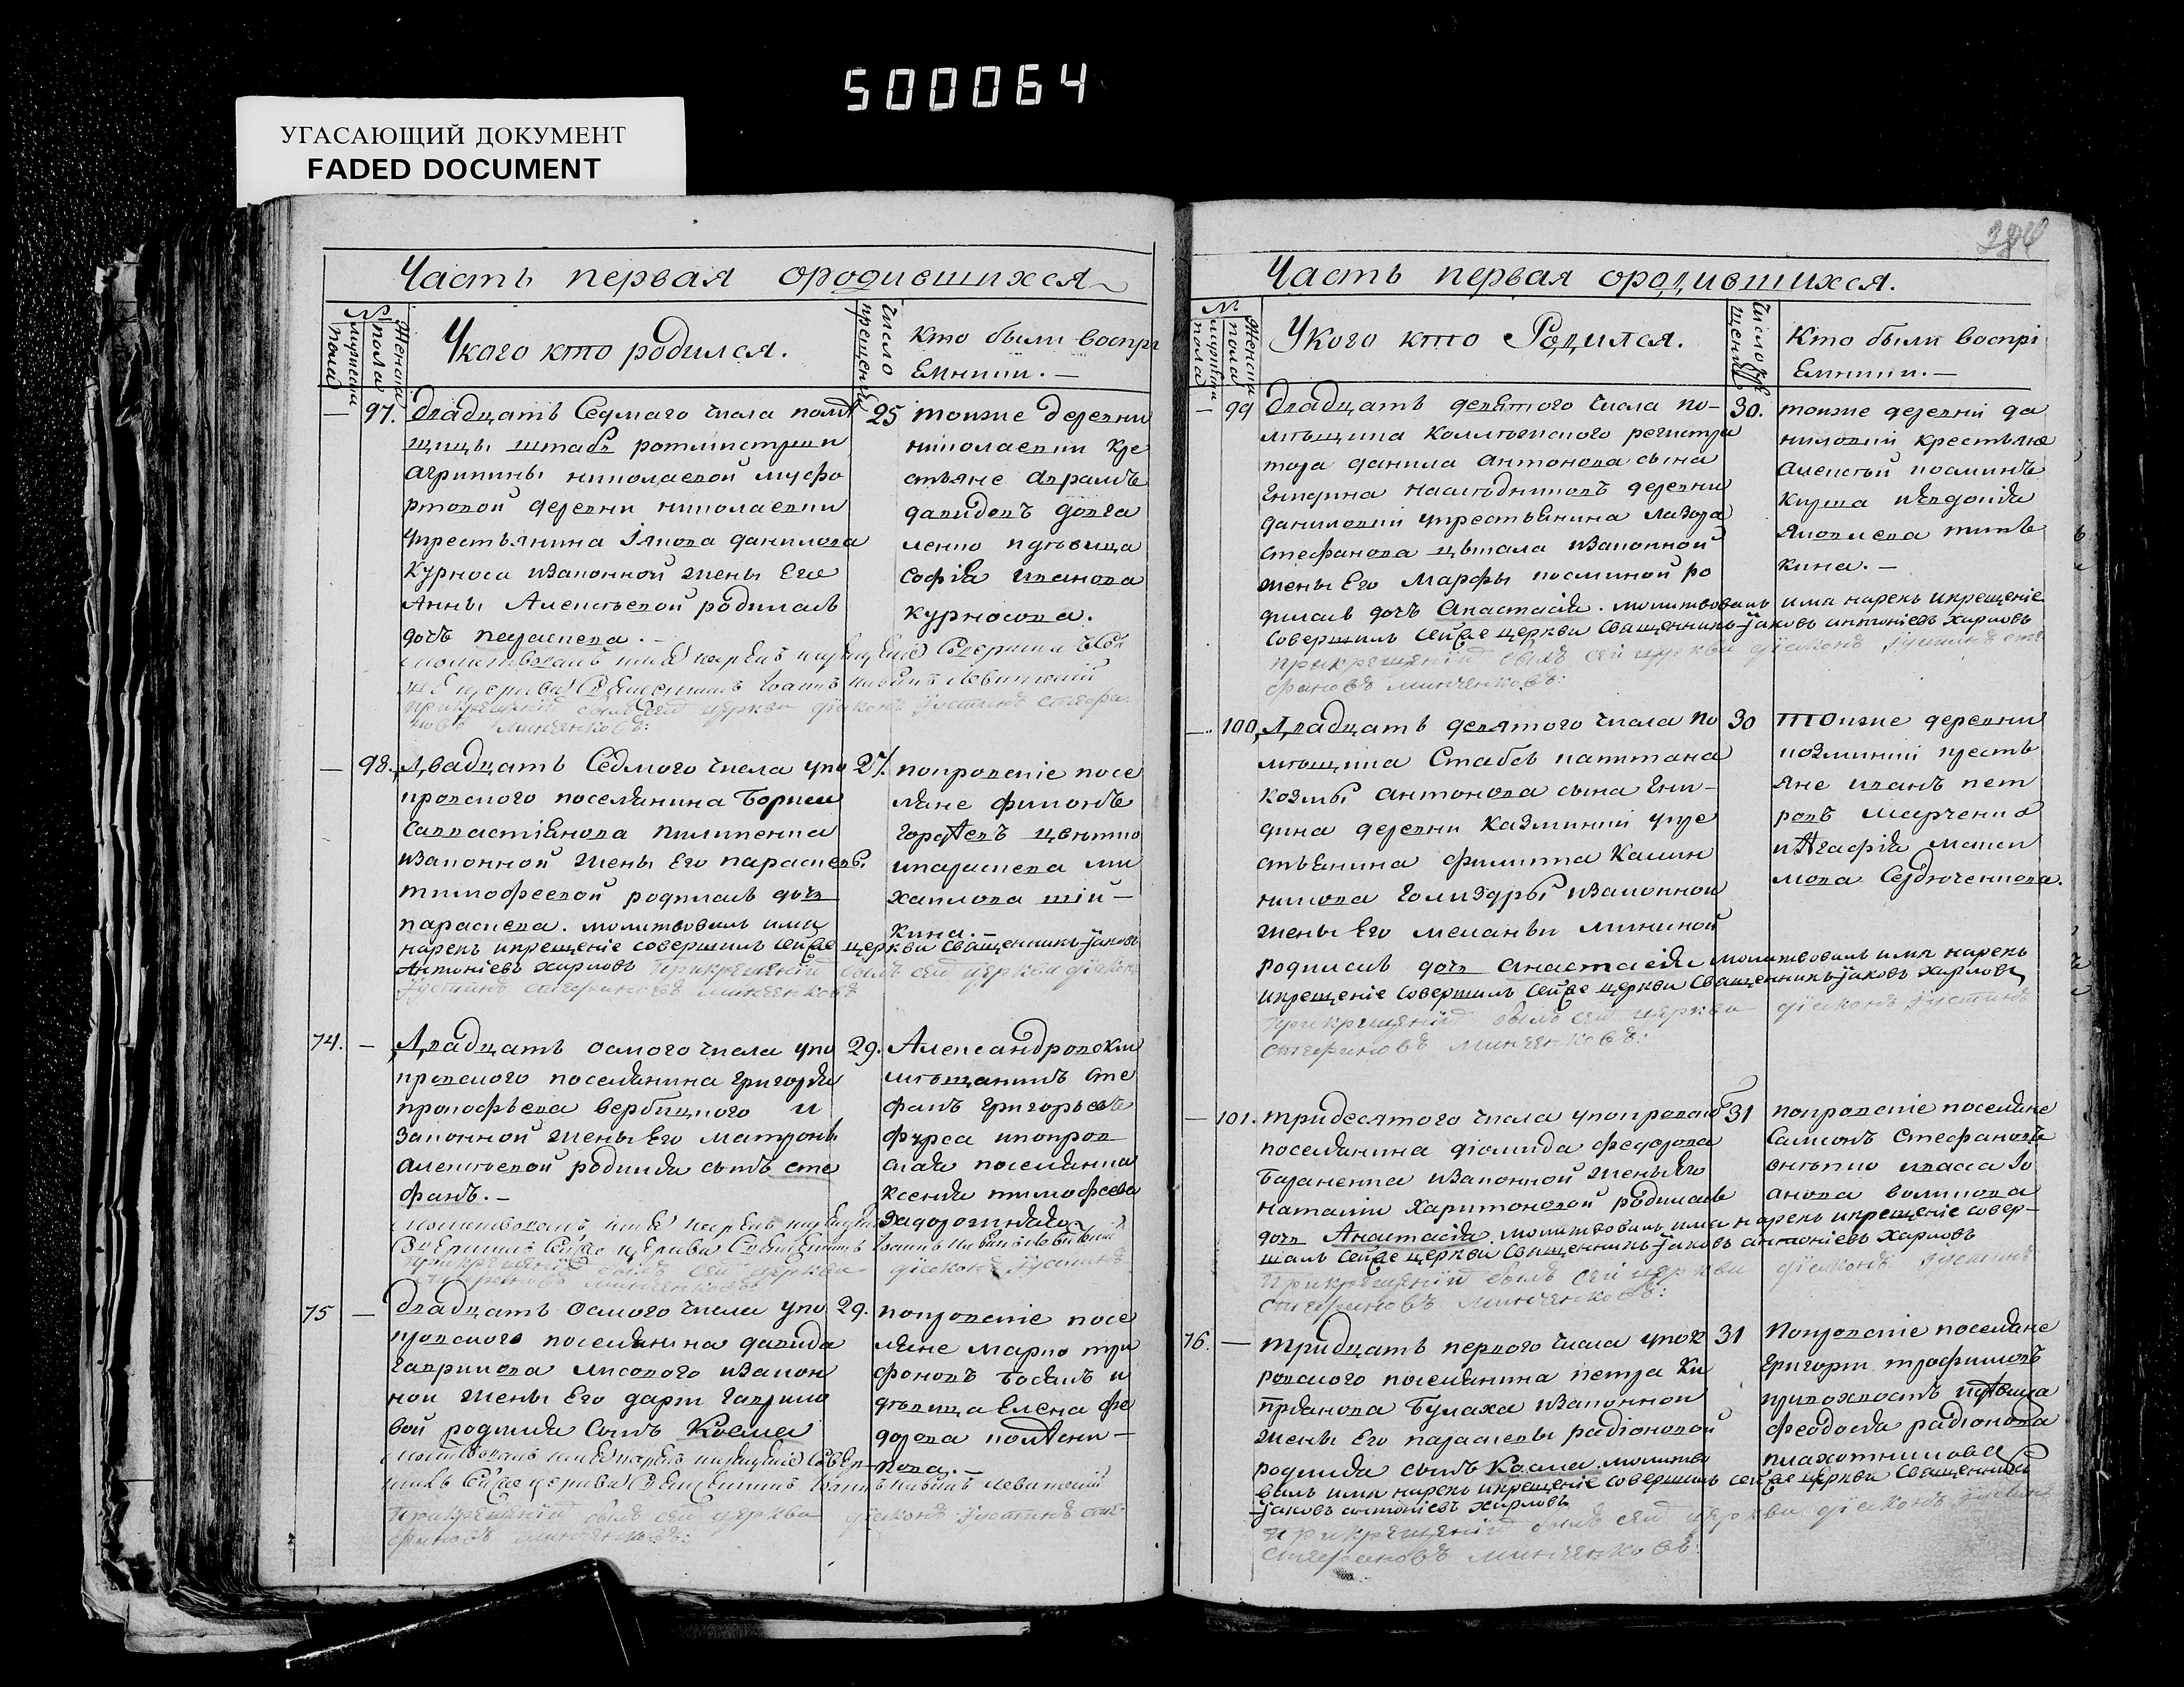 500064
УГАСАЮЩИЙ ДОКУМЕНТ
FADED DOCUMENT
Часть первая ородившихся
№
мужеска пола
Женска пола
Укого кто родился.
Число крещения
Кто были воспрі
Емники. —
— 97. двадцать Седмаго числа помѣ
щицы штабъ ротмистрши
агрипины николаевой мусфо
ртовой деревни николаевки
укрестьянина Іякова данилова
Курноса изаконной жены Его
Анны Алексѣевой родилась
дочь параскева. —
молитвовалъ имя нарекъ икрещеніе Совершилъ
церкви Священникъ Іоаннъ Левитскій
прикрещеніи былъ сей церкви діаконъ Іустинъ Стефа
новъ Минченковъ:
25 тоиже деревни
николаевки кре
стьяне аврамъ
давидовъ довга
ленко идѣвица
софія иванова
курносова.
— 98. Двадцать Седмого числа упо
кровского поселянина Бориса
Савастіянова пилипенка
изаконной жены Его параскевы
тимофеевой родилась дочь
параскева. молитвовалъ имя
нарекъ икрещеніе совершилъ сейже церкви Священникъ Іаковъ
Антоніевъ Харловъ прикрещеніи былъ сей церкви діаконъ
Іустинъ стефановъ минченковъ
27. покровскіе посе
ляне филонъ
ипараскева ми
хаилова шій—
кина. —
74. — Двадцать осмого числа упо
кровского поселянина григорія
прокофьева вербицкого и
законной жены Его матроны
алексѣевой родился сынъ сте
фанъ. —
молитвовалъ имя нарекъ икрещеніе
Совершилъ Сейже церкви Священникъ Іоаннъ
прикрещеніи былъ сей церкви діаконъ Іустинъ
стефановъ минченковъ
29. Александровски
мѣщанинъ сте
фанъ григорьевъ
фурса ипокров
ская поселянка
ксенія тимофеева
задорожняя
75 — двадцать осмого числа упо
кровского поселянина давида
гаврилова лисового изакон
ной жены Его дарїи гаврило
вой родился Сынъ Косма
молитвовалъ имя нарекъ икрещеніе Совер—
шилъ Сейже церкви Священникъ Іоаннъ Левитскій
прикрещеніи былъ сей церкви діаконъ Іустинъ сте
фановъ минченковъ:
29. покровскіе посе
ляне марко три
фоновъ и
дѣвица Елена фе
дорова
Часть первая ородившихся.
№
мужеска пола
Женска пола
Укого кто Родился.
Число крещения
Кто были воспрі
Емники. —
— 99 двадцать девятого числа по—
мѣщика Коллѣжского регистра
тора данила антонова сына
наслѣдниковъ деревни
даниловки укрестьянина лазора
стефанова изаконной
жены Его Марфы косминой ро
дилась дочь анастасія. молитвовалъ имя нарекъ икрещеніе
совершилъ сейже церкви Священникъ Іаковъ антоніевъ Харловъ
прикрещеніи былъ сей церкви діаконъ Іустинъ сте
фановъ минченковъ:
30. тоиже деревни да
ниловки крестьяне
Алексѣй косминъ
Яковлева
кина. —
— 100, Двадцать девятого числа по
мѣщика Стабсъ капитана
козмы антонова сына
деревни казминки укре
стьянина филиппа Калин
никова изаконной
жены Его меланьи мининой
родилась дочь анастасія молитвовалъ имя нарекъ
икрещеніе Совершилъ Сейже церкви Священникъ Іаковъ Харловъ
прикрещеніи былъ сей церкви діаконъ Іустинъ
стефановъ минченковъ:
30 тоиже деревни
козминки кресть
яне иванъ пет
ровъ марченко
иАгафія макси
мова Сердюченкова.
— 101. тридесятого числа упокровского
поселянина діомида федорова
Бараненка изаконной жены Его
наталіи Харитоновой родилась
дочь Анастасія. молитвовалъ имя нарекъ икрещеніе совер—
шалъ Сейже церкви Священникъ Іаковъ антоніевъ Харловъ
прикрещеніи былъ сей церкви діаконъ Іустинъ
стефановъ минченковъ:
31 покровскіе поселяне
Самсонъ Стефановъ
ивасса
анова волкова
76. — тридцать первого числа упок
ровского поселянина петра Ки
пріанова Булаха изаконной
жены Его параскевы радіоновой
родился сынъ Косма. молитво
валъ имя нарекъ икрещеніе совершилъ сейже церкви Священникъ
Іаковъ антоніевъ Харловъ
прикрещеніи былъ сей церкви діаконъ Іустинъ
стефановъ минченковъ:
31 Покровскіе поселяне
григорій трофимовъ
привохвостъ идѣвица
феодосія радіонова
плахотникова